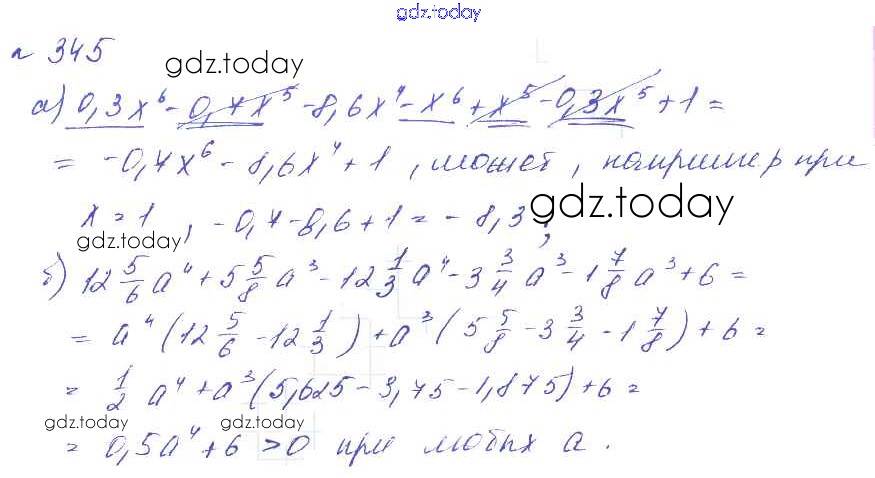 gdz.today
n 345
gdz.today
а) 0,3x⁶ - 0,7x⁵ - 8,6x⁴ - x⁶ + x⁵ - 0,3x⁵ + 1 =
= -0,7x⁶ - 8,6x⁴ + 1, может, например при
x = 1, -0,7 - 8,6 + 1 = - 8,3;
gdz.today
gdz.today
б) 12 5/6 a⁴ + 5 5/8 a³ - 12 1/3 a⁴ - 3 3/4 a³ - 1 7/8 a³ + 6 =
= a⁴ (12 5/6 - 12 1/3) + a³ (5 5/8 - 3 3/4 - 1 7/8) + 6 =
= 1/2 a⁴ + a³ (5,625 - 3,75 - 1,875) + 6 =
gdz.today gdz.today
= 0,5a⁴ + 6 > 0 при любых a.